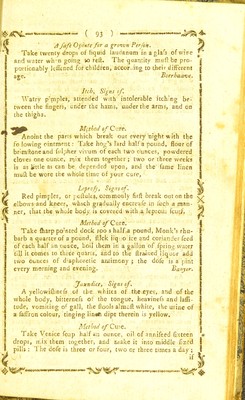 ( 93 )
A safe Opiate for a grown Person.
Take twenty drops of liquid laudanum in a glass of wine
and water when going to rest. The quantity must be pro-
portionably lessened for children, according to their different
age. Boerhaave.
Itch, Signs of.
Watry pimples, attended with intolerable itching be-
tween the fingers, under the hams, under the arms, and on
the thighs.
Method of Cure.
Anoint the parts which break out every night with the
following ointment: Take hog's lard half a pound, flour of
brimstone and sulpher vivum of each two ounces, powdered
cloves one ounce, mix them together; two or three weeks
is as little as can be depended upon, and the same linen
must be wore the whole time of your cure,
Leprosy, Signs of.
Red pimples, or pustules, commonly first break out on the
elbows and knees, which gradually encrease in such a man-
ner, that the whole body is covered with a leprous scurf.
Method of Cure.
Take sharp pointed dock root half a pound, Monk's rhu-
barb a quarter of a pound, stick liquorice and coriander seed
of each half an ounce, boil them in a gallon of spring water
till it comes to three quarts, and to the strained liquor add
two ounces of diaphoretic antimony; the dose is a pint
every morning and evening. Banyer.
Jaundice, Signs of.
A yellowishness of the whites of the eyes, and of the
whole body, bitterness of the tongue, heaviness and lassi-
tude, vomiting of gall, the stools almost white, the urine of
a saffron colour, tinging linen dipt therein is yellow.
Method of Cure.
Take Venice soap half an ounce, oil of anniseed sixteen
drops, mix them together, and make it into middle sized
pills: The dose is three or four, two or three times a day;